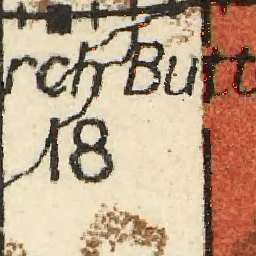 rch Butt
18